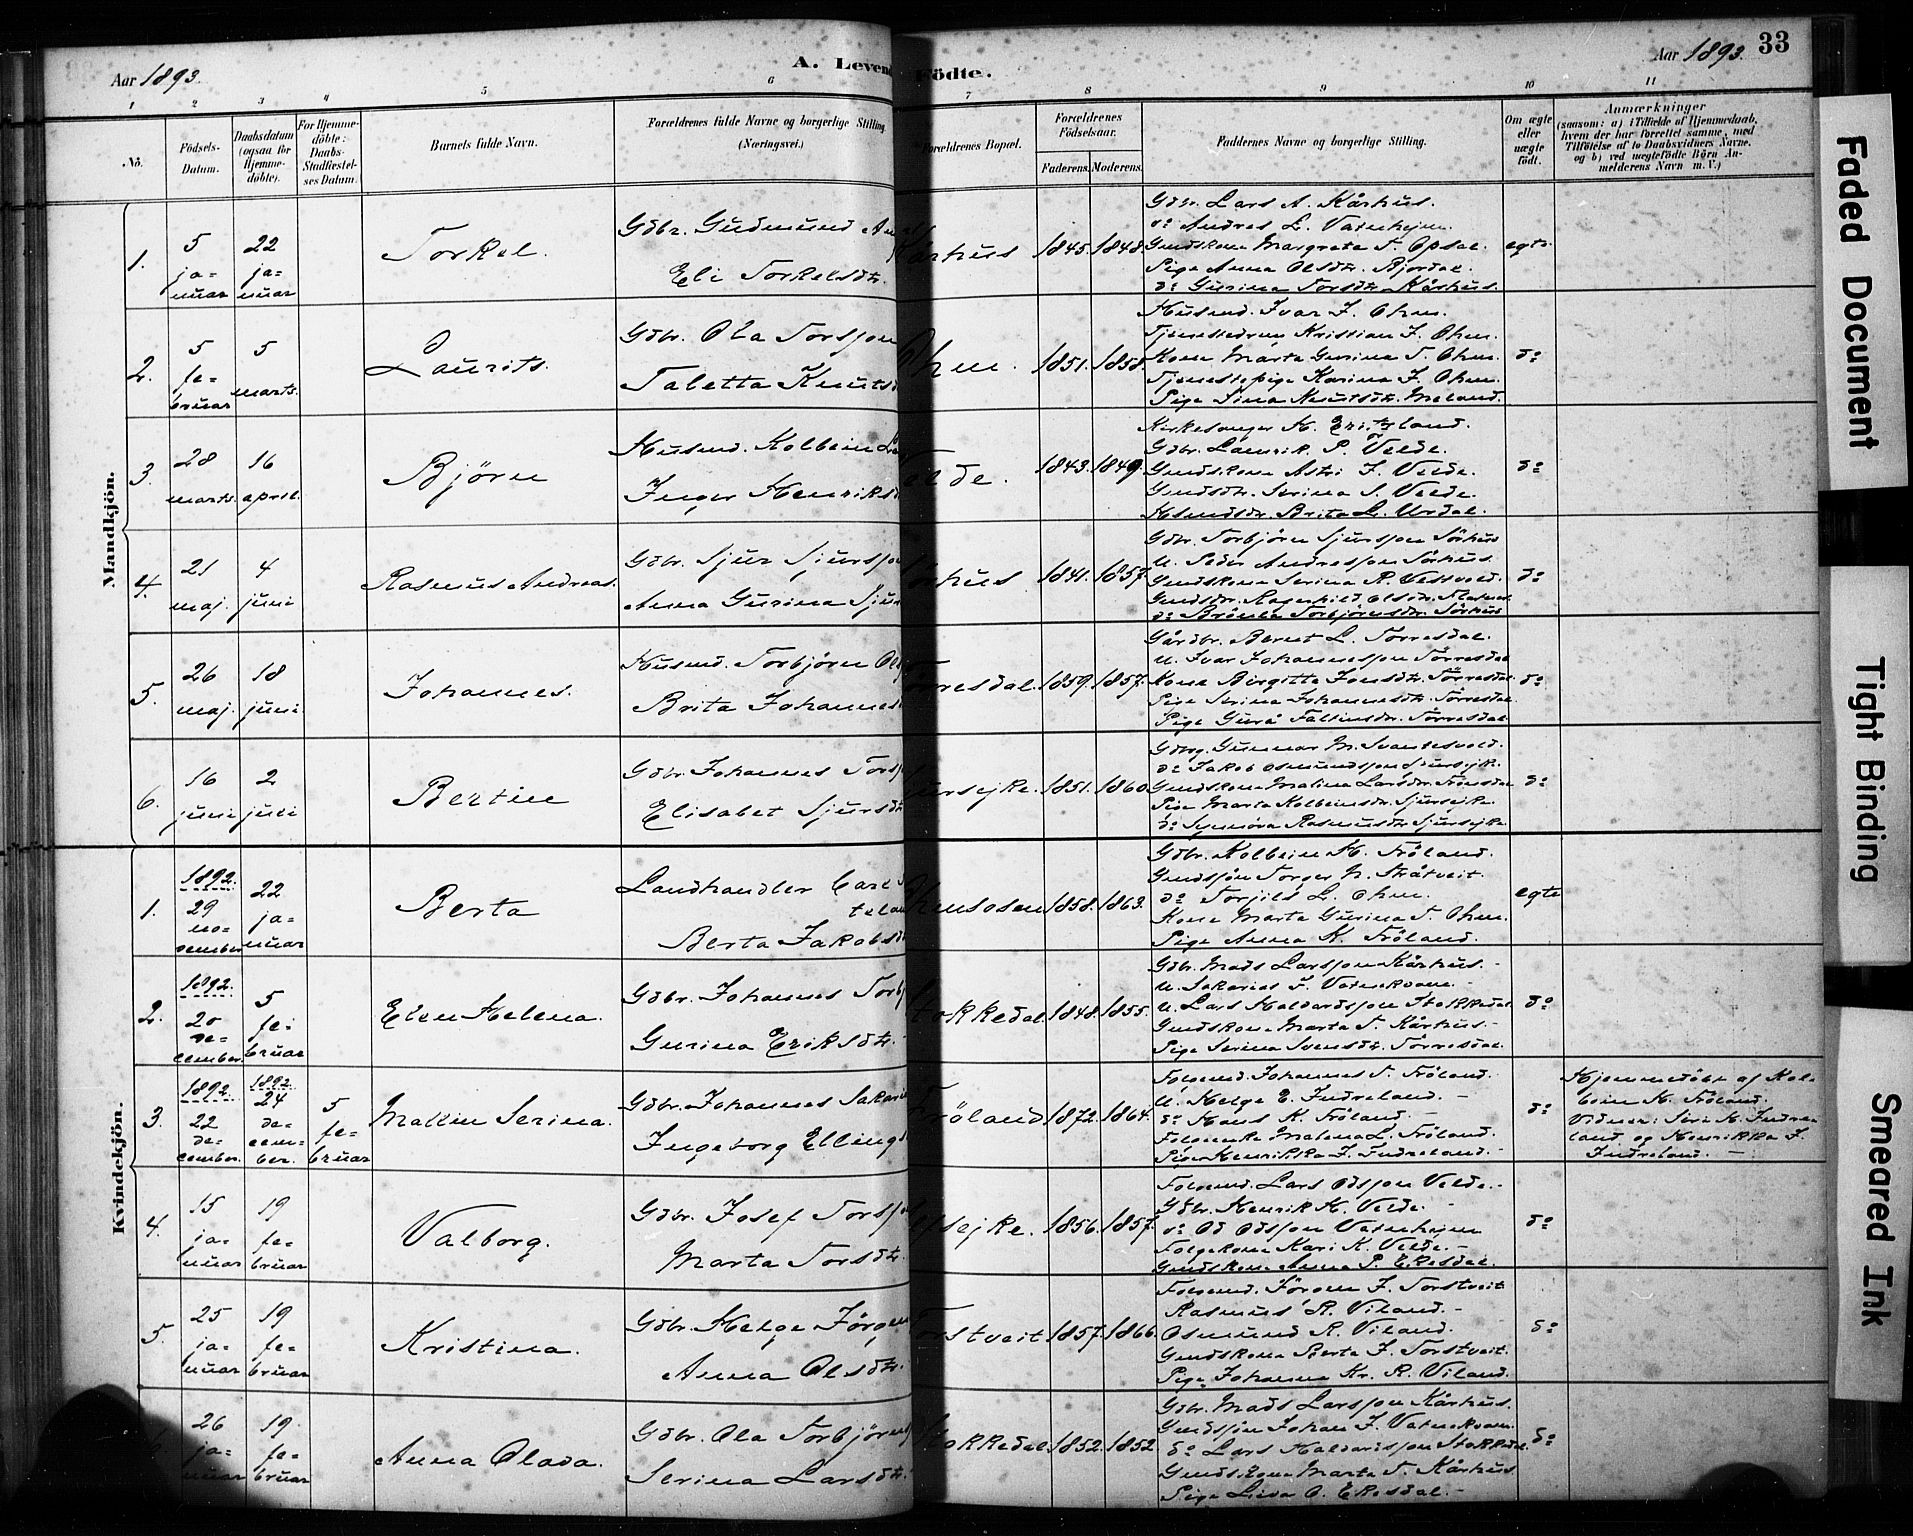 Aar 1893.
A. Levend
Födte.
Aar 1893.
33
1 2 3 4 5 6 7 8 9 10 11
No.
Födsels-
Datum.
Daabsdatum
(ogsaa for
Hjemme-
döbte).
For Hjemme-
döbte:
Daabs-
Stadfæstel-
ses Datum.
Barnets fulde Navn.
Forældrenes fulde Navne og borgerlige Stilling
(Næringsvei.)
Forældrenes Bopæl.
Forældrenes
Födselsaar.
Faderens.
Moderens.
Faddernes Navne og borgerlige Stilling.
Om ægte
eller
uægte
födt.
Anmærkninger
(saasom: a) i Tilfælde af Hjemmedaab,
hvem der har forrettet samme, med
Tilföielse af to Daabsvidners Navne,
og b) ved uægtefödte Börn An-
melderens Navn m. V.)
Mandkjön.
1.
5
ja-
nuar
22
ja-
nuar
Torkel.
Gdbr. Gudmund
Eli Torkelsdtr.
1845. 1848.
Gdbr. Lars A. Kårhus.
do Andres L. Vatnehjem.
Gmdskone Margreta T. Opsal.
Pige Anna Olsdtr. Bjordal.
do Gurina Torsdtr. Kårhus.
egte
2.
5
fe-
bruar
5
marts.
Laurits.
Gdbr. Ola Torsson
Taletta Knuts
1851. 1858.
Husmd. Ivar J. Ohm.
Tjenestedreng Kristian J. Ohm.
Kone Marta Gurina T. Ohm.
Tjenestepige Karina J. Ohm.
Pige Sina Knutsdtr. Meland.
do
3.
28
marts.
16
april.
Björn
Husmd. Kolbein
Inger Henriks
1843. 1849.
Kirkesanger H.
Gdbr. Laurik P. Velde.
Gmdskone Astri J. Velde.
Gmdsdtr. Serina S. Velde.
Hsmdsdtr. Brita L. Urdal.
do
4.
21
maj.
4
juni
Rasmus Andreas.
Gdbr. Sjur Sjursson
Anna Gurina Sjur
1841. 1857.
Gdbr. Torbjörn Sjursson Sörhus
U. Peder Andresson Sörhus.
Gmdskone Serina R. Vestvold.
Gmdsdtr. Ragnhild Olsdtr.
do Torbjörnsdtr. Sörhus
do
5.
26
maj.
18
juni.
Johannes.
Husmd. Torbjörn Ol
Brita Johannes
1859. 1857.
Gårdbr. Bernt L. Törresdal.
U. Ivar Johannesson Törresdal
Kone Birgitte Jonsdtr. Törresdal
Pige Serina Johannesdtr. Törresdal
Pige Guro Törresdal
do
6.
16
juni
2
juli
Bertin
Gdbr. Johannes Tors
Elisabet Sjursdtr
1851. 1860.
Gdbrg. Gunnar M. Svartesvold.
do Jakob Osmundsson Sjursejke.
Gmdskone Malina Larsdtr.
Pige Marta Kolbeinsdtr. Sjursejke.
do Synnöva Rasmusdtr. Sjursejke
do
Kvindekjön.
1.
1892.
29
no-
vember
22
ja-
nuar
Berta
Landhandler Carl
Berta Jakobsd
1858. 1863.
Gdbr. Kolbein H. Fröland.
Gmdssön Torger N. Skåtveit.
do Torjils L. Ohm.
Kone Marta Gurina T. Ohm.
Pige Anna K. Fröland.
egte
2.
1892.
20
de-
cember
5
fe-
bruar
Elen Helena.
Gdbr. Johannes Torb
Gurina Eriksdtr.
1848. 1855.
Gdbr. Mads Larsson Kårhus.
U. Sakarias J. Vatnekvam.
U. Lars Haldordsson Stokkedal
Gmdskone Marta T. Kårhus.
Pige Serina Svensdtr. Törresdal
do
3.
1892.
22
de-
cember.
1892.
24
de-
cem-
ber.
5
fe-
bruar
Mallin Serina.
Gdbr. Johannes Sakari
Ingeborg Ellings
Fröland
1872. 1864.
Folgemd. Johannes T. Fröland.
U. Helge E. Indreland.
do Hans K. Fröland.
Folgeenke Malena L. Fröland.
Pige Henrikka J. Indreland.
do
Hjemmedöbt af Kol-
bein H. Fröland.
Vidner: Siri H. Indre-
land, og Henrikka J.
Indreland.
4.
15
ja-
nuar
19
fe-
bruar
Valborg.
Gdbr. Josef Torsson
Marta Torsdtr.
1856. 1857.
Folgemd. Lars Odsson Velde.
Gdbr. Henrik H. Velde.
do Od Odsson Vatnehjem
Folgekone Kari K. Velde.
Gmdskone Anna P. Ekesdal.
do
5.
25
ja-
nuar
19
fe-
bruar
Kristina.
Gdbr. Helge Jörgen
Anna Olsdtr.
1857. 1866.
Folgemd. Jörgen J. Torstveit
Rasmus R. Viland.
Osmund R. Viland.
Gmdskone Berta J. Torstveit.
Pige Johanna Kr. R. Viland.
do
26
ja-
nuar
19
fe-
bruar
Anna Olava.
Gdbr. Ola Torbjörns
Serina Larsdtr.
1852. 1852.
Gdbr. Mads Larsson Kårhus.
Gmdssön Johan J. Vatnekvam.
do Lars Haldordsson Stokkedal
Gmdskone Marta T. Kårhus
Pige Lina O. Ekesdal.
do
Faded Document
Tight Binding
Smeared Ink